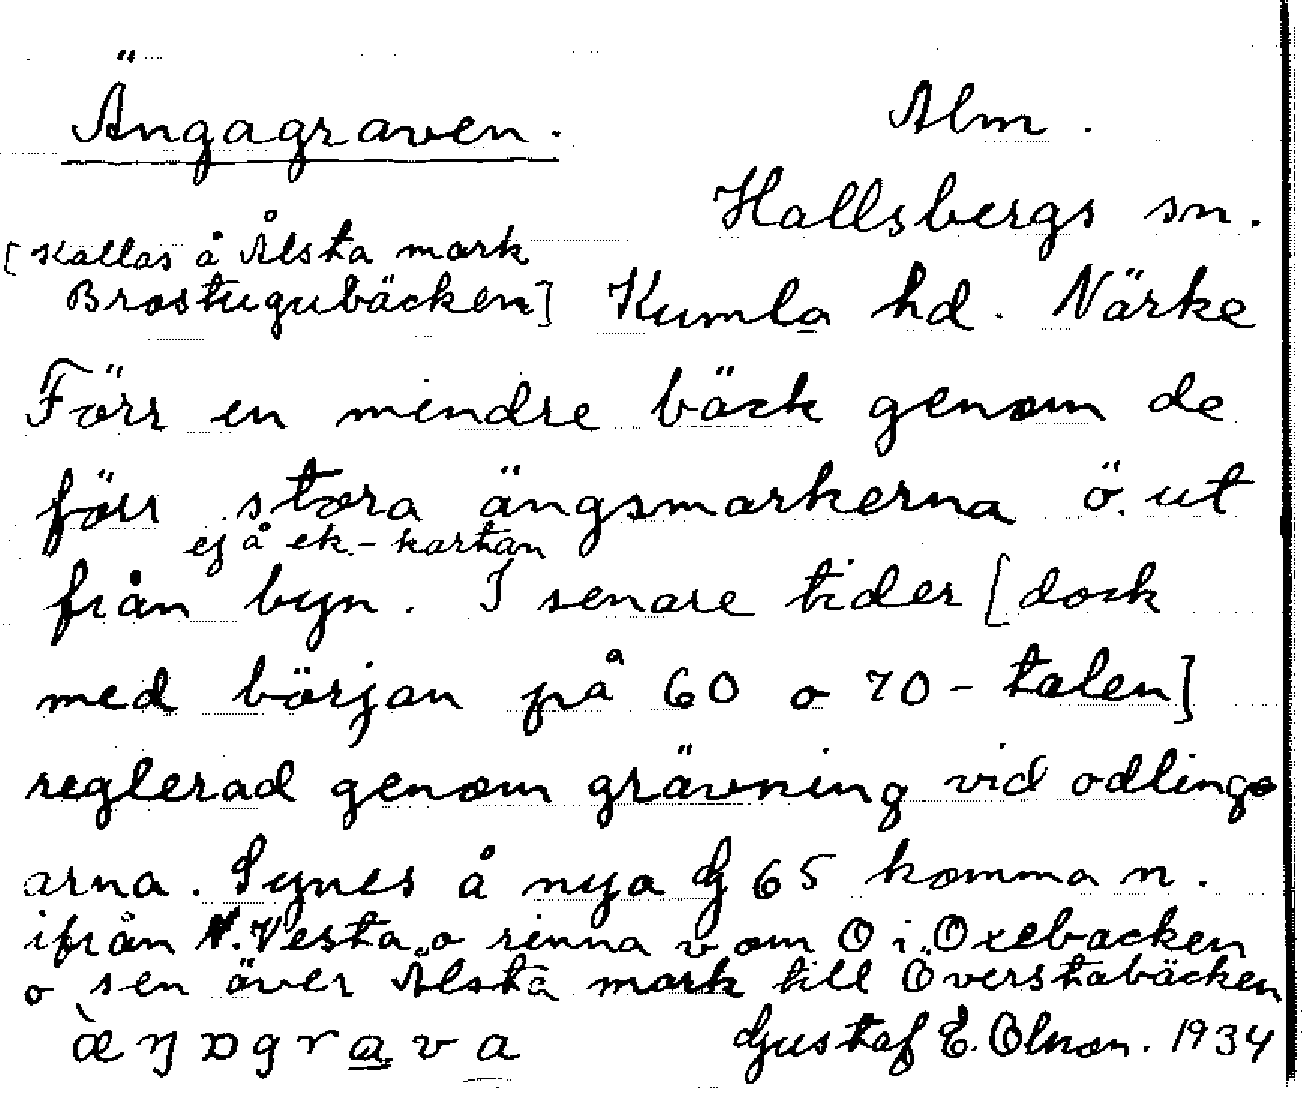 Ängagraven. Alm.
Hallsbergs sn.
[Kallas å Ålsta mark
Brostugubäcken] Kumla hd. Närke
Förr en mindre bäck genom de
förr stora ängsmarkerna ö. ut
ej å ek-kartan
från byn. I senare tider [dock
med början på 60 o 70-talen]
reglerad genom grävning vid odlings
arna. Synes å nya G 65 komma n.
ifrån N. Vesta o rinna v om O i Oxebacken
o sen över Ålsta mark till Överstabäcken
æ̀ŋɔgrava Gustaf E. Olson. 1934